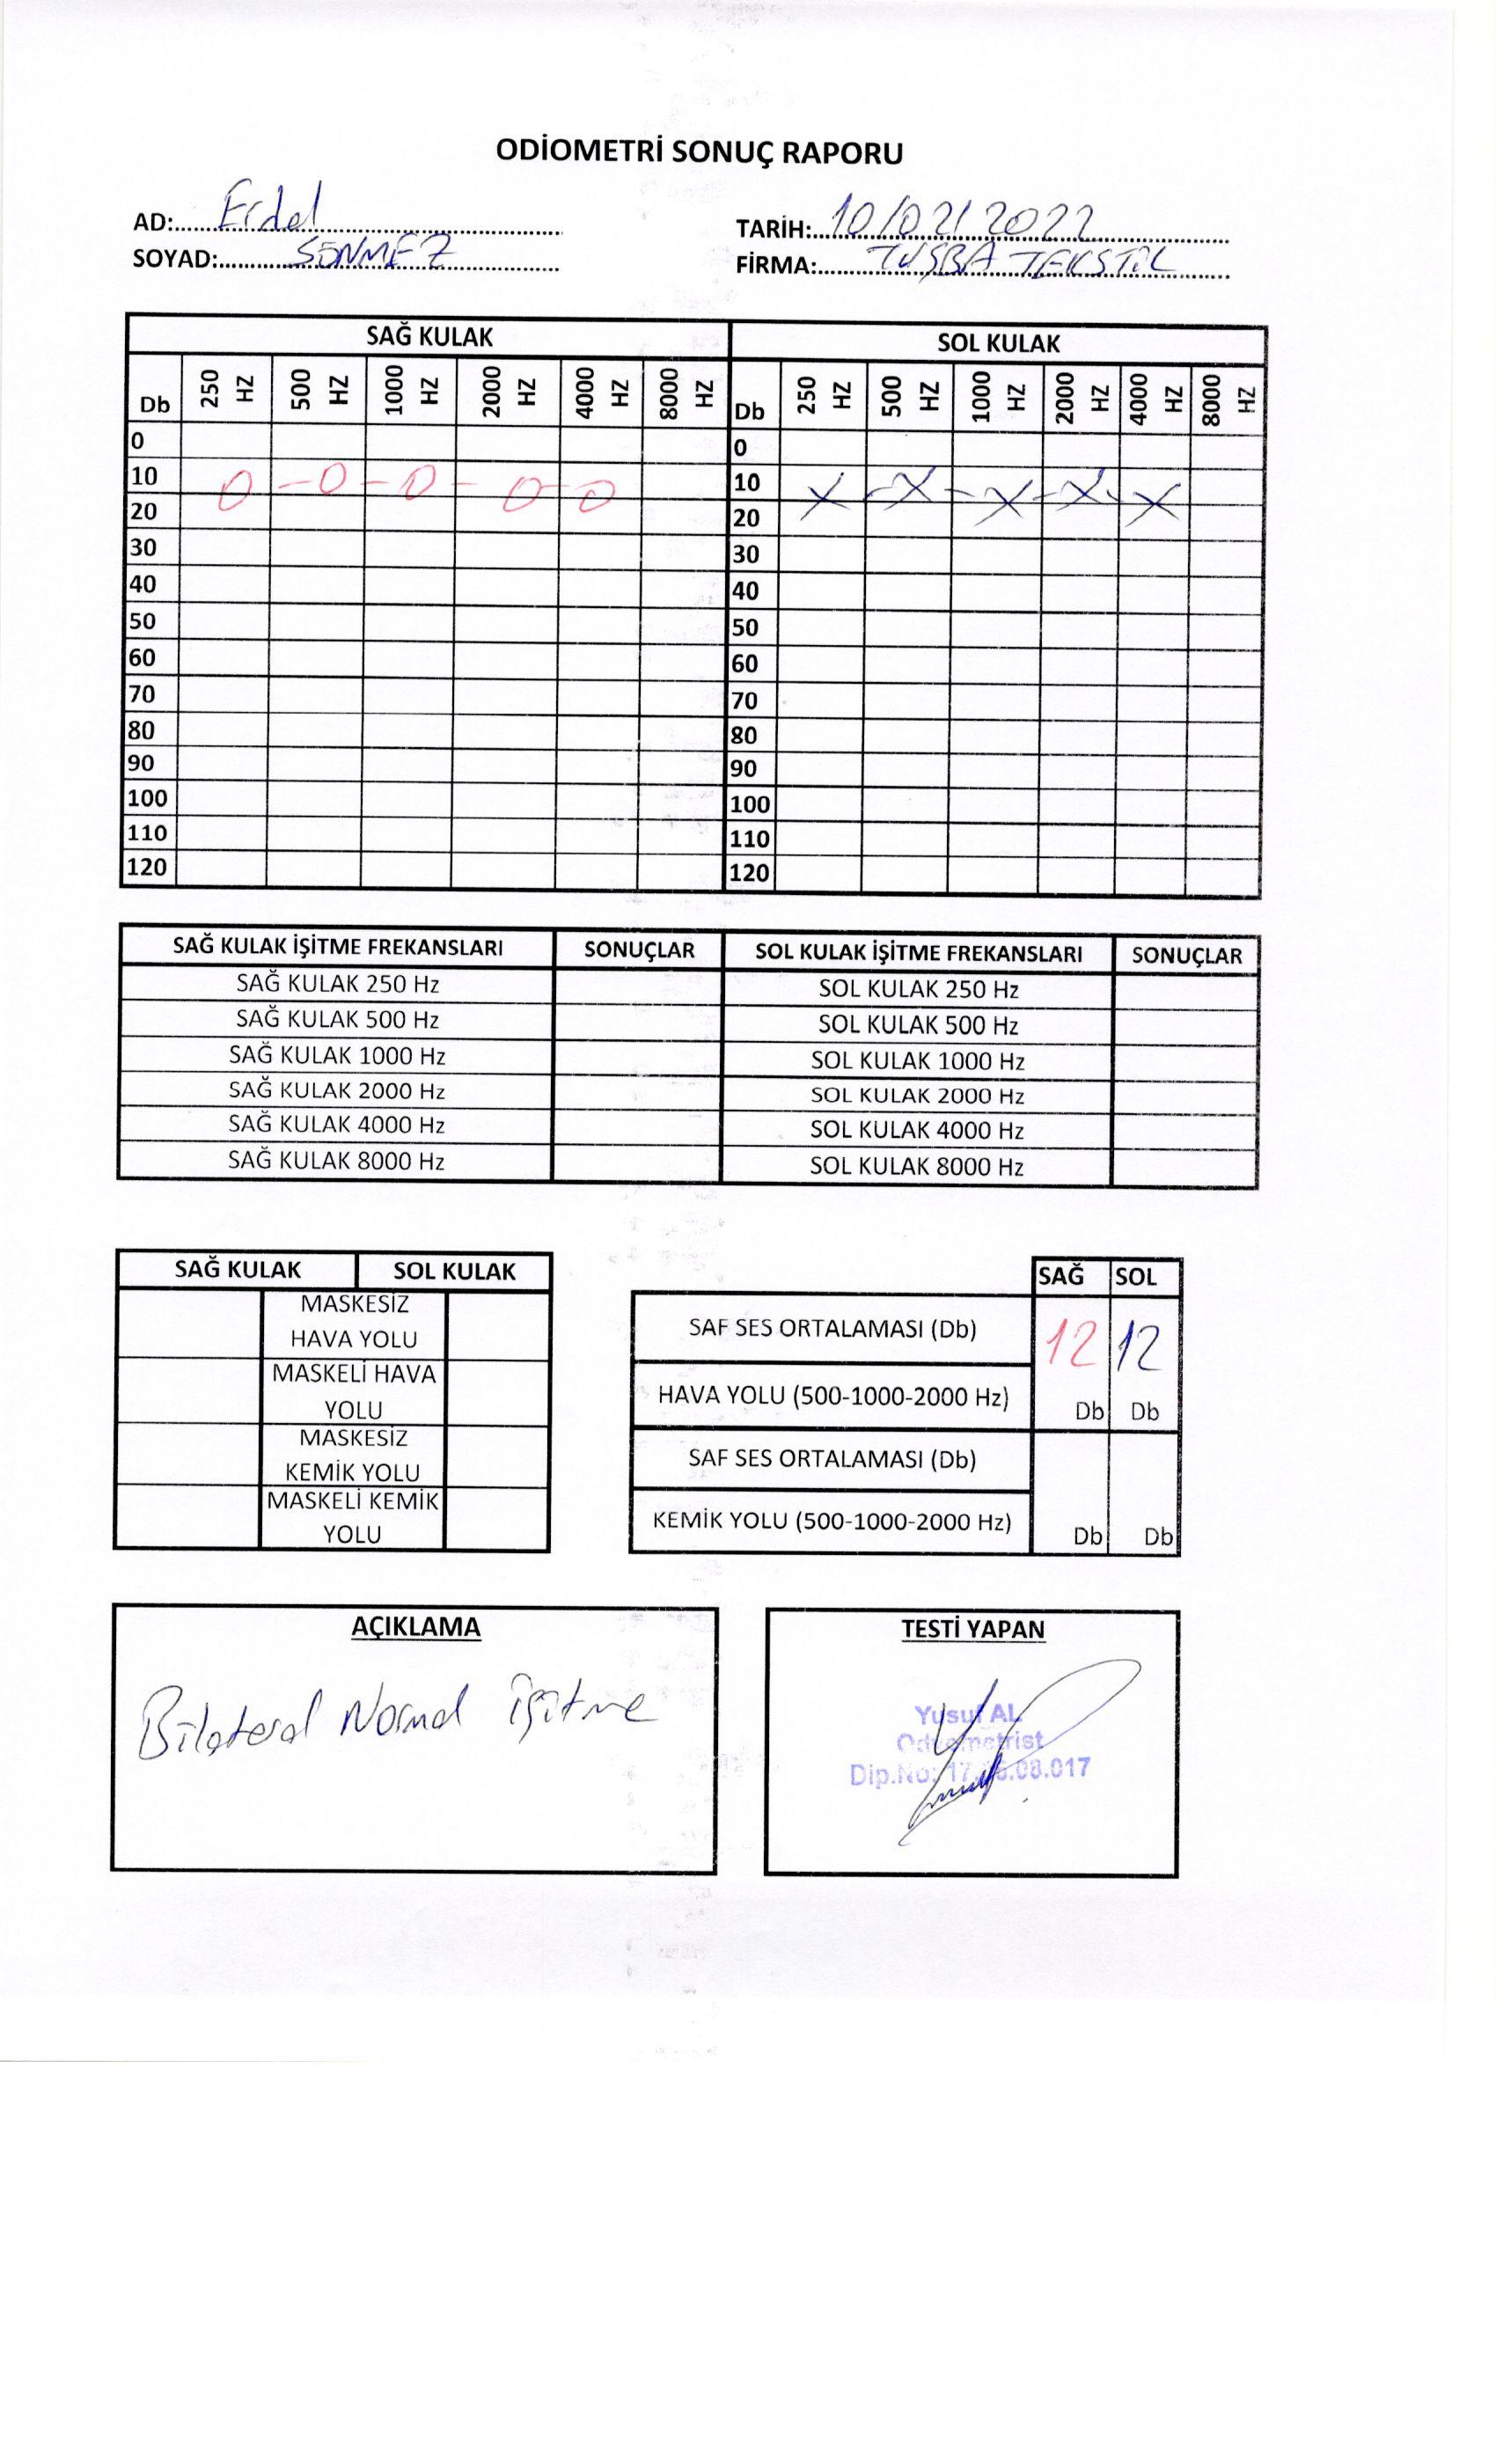 ODİOMETRİ SONUÇ RAPORU
AD: Erdal
TARİH: 10/02/2022
SOYAD: SÖNMEZ
FİRMA: TUŞBA TEKSTİL
SAĞ KULAK SOL KULAK
Db 250 HZ 500 HZ 1000 HZ 2000 HZ 4000 HZ 8000 HZ Db 250 HZ 500 HZ 1000 HZ 2000 HZ 4000 HZ 8000 HZ
0 0
10 10
20 20
30 30
40 40
50 50
60 60
70 70
80 80
90 90
100 100
110 110
120 120
SAĞ KULAK İŞİTME FREKANSLARI SONUÇLAR SOL KULAK İŞİTME FREKANSLARI SONUÇLAR
SAĞ KULAK 250 Hz SOL KULAK 250 Hz
SAĞ KULAK 500 Hz SOL KULAK 500 Hz
SAĞ KULAK 1000 Hz SOL KULAK 1000 Hz
SAĞ KULAK 2000 Hz SOL KULAK 2000 Hz
SAĞ KULAK 4000 Hz SOL KULAK 4000 Hz
SAĞ KULAK 8000 Hz SOL KULAK 8000 Hz
SAĞ KULAK SOL KULAK
MASKESİZ
HAVA YOLU
MASKELİ HAVA
YOLU
MASKESİZ
KEMİK YOLU
MASKELİ KEMİK
YOLU
SAĞ SOL
SAF SES ORTALAMASI (Db) 12 12
HAVA YOLU (500-1000-2000 Hz) Db Db
SAF SES ORTALAMASI (Db)
KEMİK YOLU (500-1000-2000 Hz) Db Db
AÇIKLAMA
Bilateral Normal işitme
TESTİ YAPAN
Yusuf AL
Odyometrist
Dip.No: